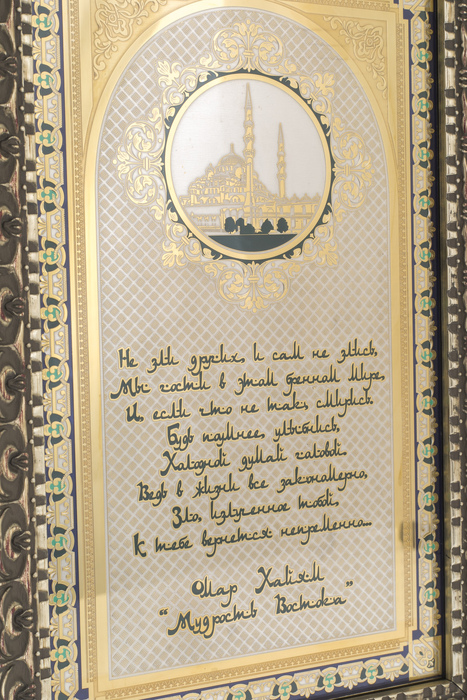 Не зли других, и сам не злись,
Мы гости в этом бренном мире,
И, если что не так, смирись.
Будь поумнее, улыбнись,
Холодной думай головой.
Ведь в жизни все закономерно,
Зло, излученное тобой,
К тебе вернется непременно...
Омар Хайям
"Мудрость Востока"